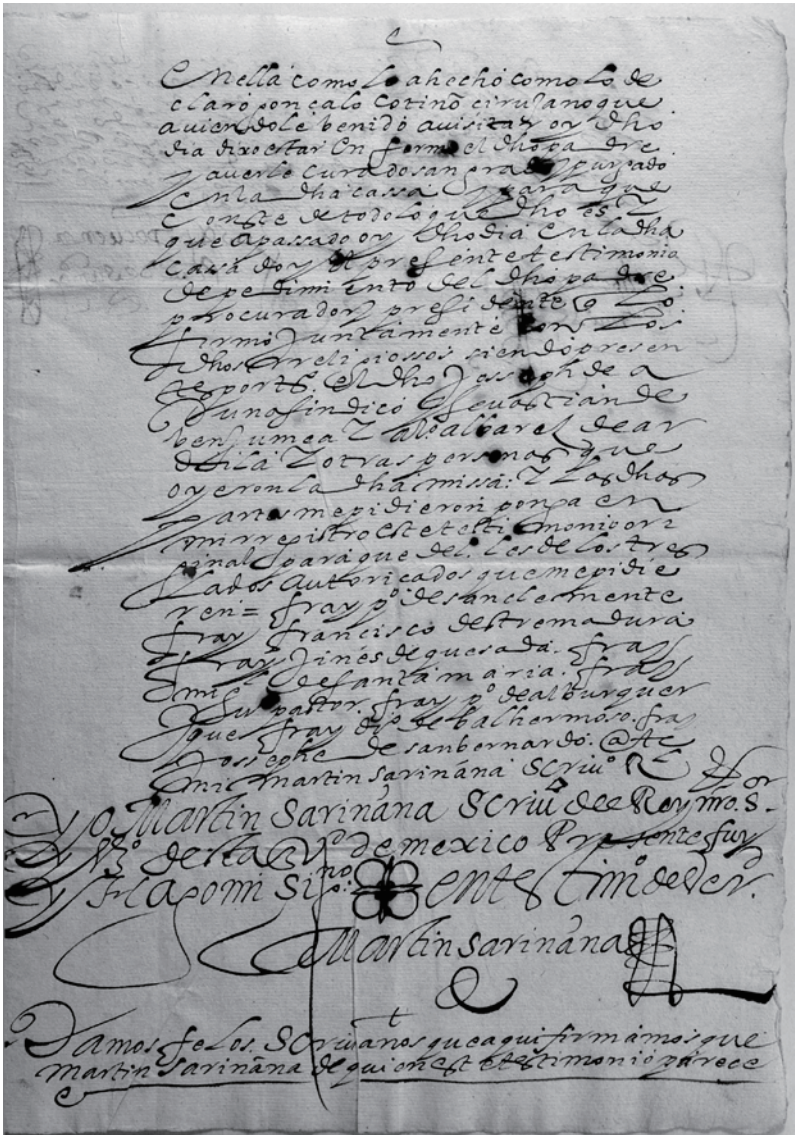 en ella como lo a hecho como lo de
claro gonçalo cotiño cirujano que
aviendole benido a visitar oy dho
dia dixo estar enfermo el dho padre
y averle curado sangrado y purgado
en la dha cassa y para que
conste de todo lo que dho es y
que a passado oy dho dia en la dha
casa doy el presente testimonio
de pedimiento del dho padre
procurador y presidente q lo
firmo juntamente con los
dhos religiossos siendo presen
tes por tso. el dho Josseph de a
cuña sindico sevastian de
benjumea y alo. albarez de ar
dila y otras personas que
oyeron la dha missa: y las dhas
partes me pidieron ponga en
mi registro este testimonio ori
ginal para que del les de los tres
lados autoricados que me pidie
ren = fray po. de san clemente
fray francisco destremadura
fray Jines de quesada. fray
migl. de santa maria. fray
pastor. fray po. de alburquer
que fray dio. de balhermoso. fray
Jossephe de san bernardo. Ante
mi martin sariñana scrivo. Rl
Yo Martin Sariñana Scrivo. del Rey nro. S.
y vzo. desta de mexico Presente fuy
y fize mi sigo. en testimo. de verd.
Martin sariñana
Damos fe los Scrivanos que aqui firmamos que
martin sariñana de quien este testimonio parece